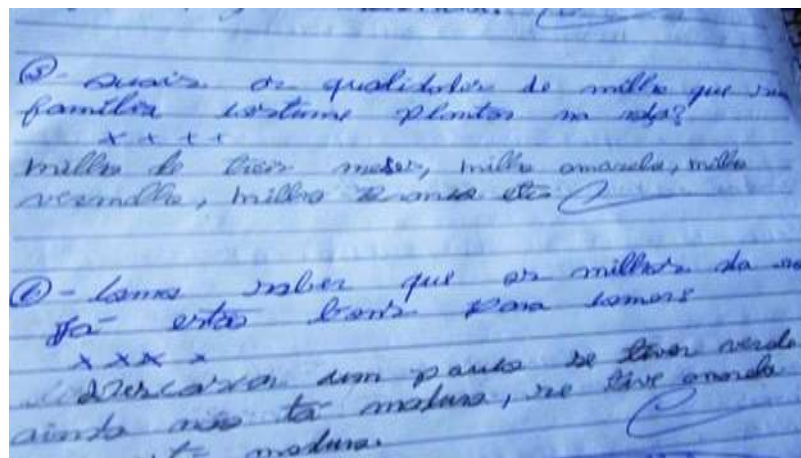 ⑤- Quais os qualidades de milho que sua
família costuma plantar na roça?
x x + +
milho de três meses, milho amarelo, milho
vermelho, milho branco etc
⑥- Como saber que os milhos da
já estão bons para comer
x x x x
Descasca um pouco se tiver verde
ainda não tá maduro, se tive amarelo
maduro.